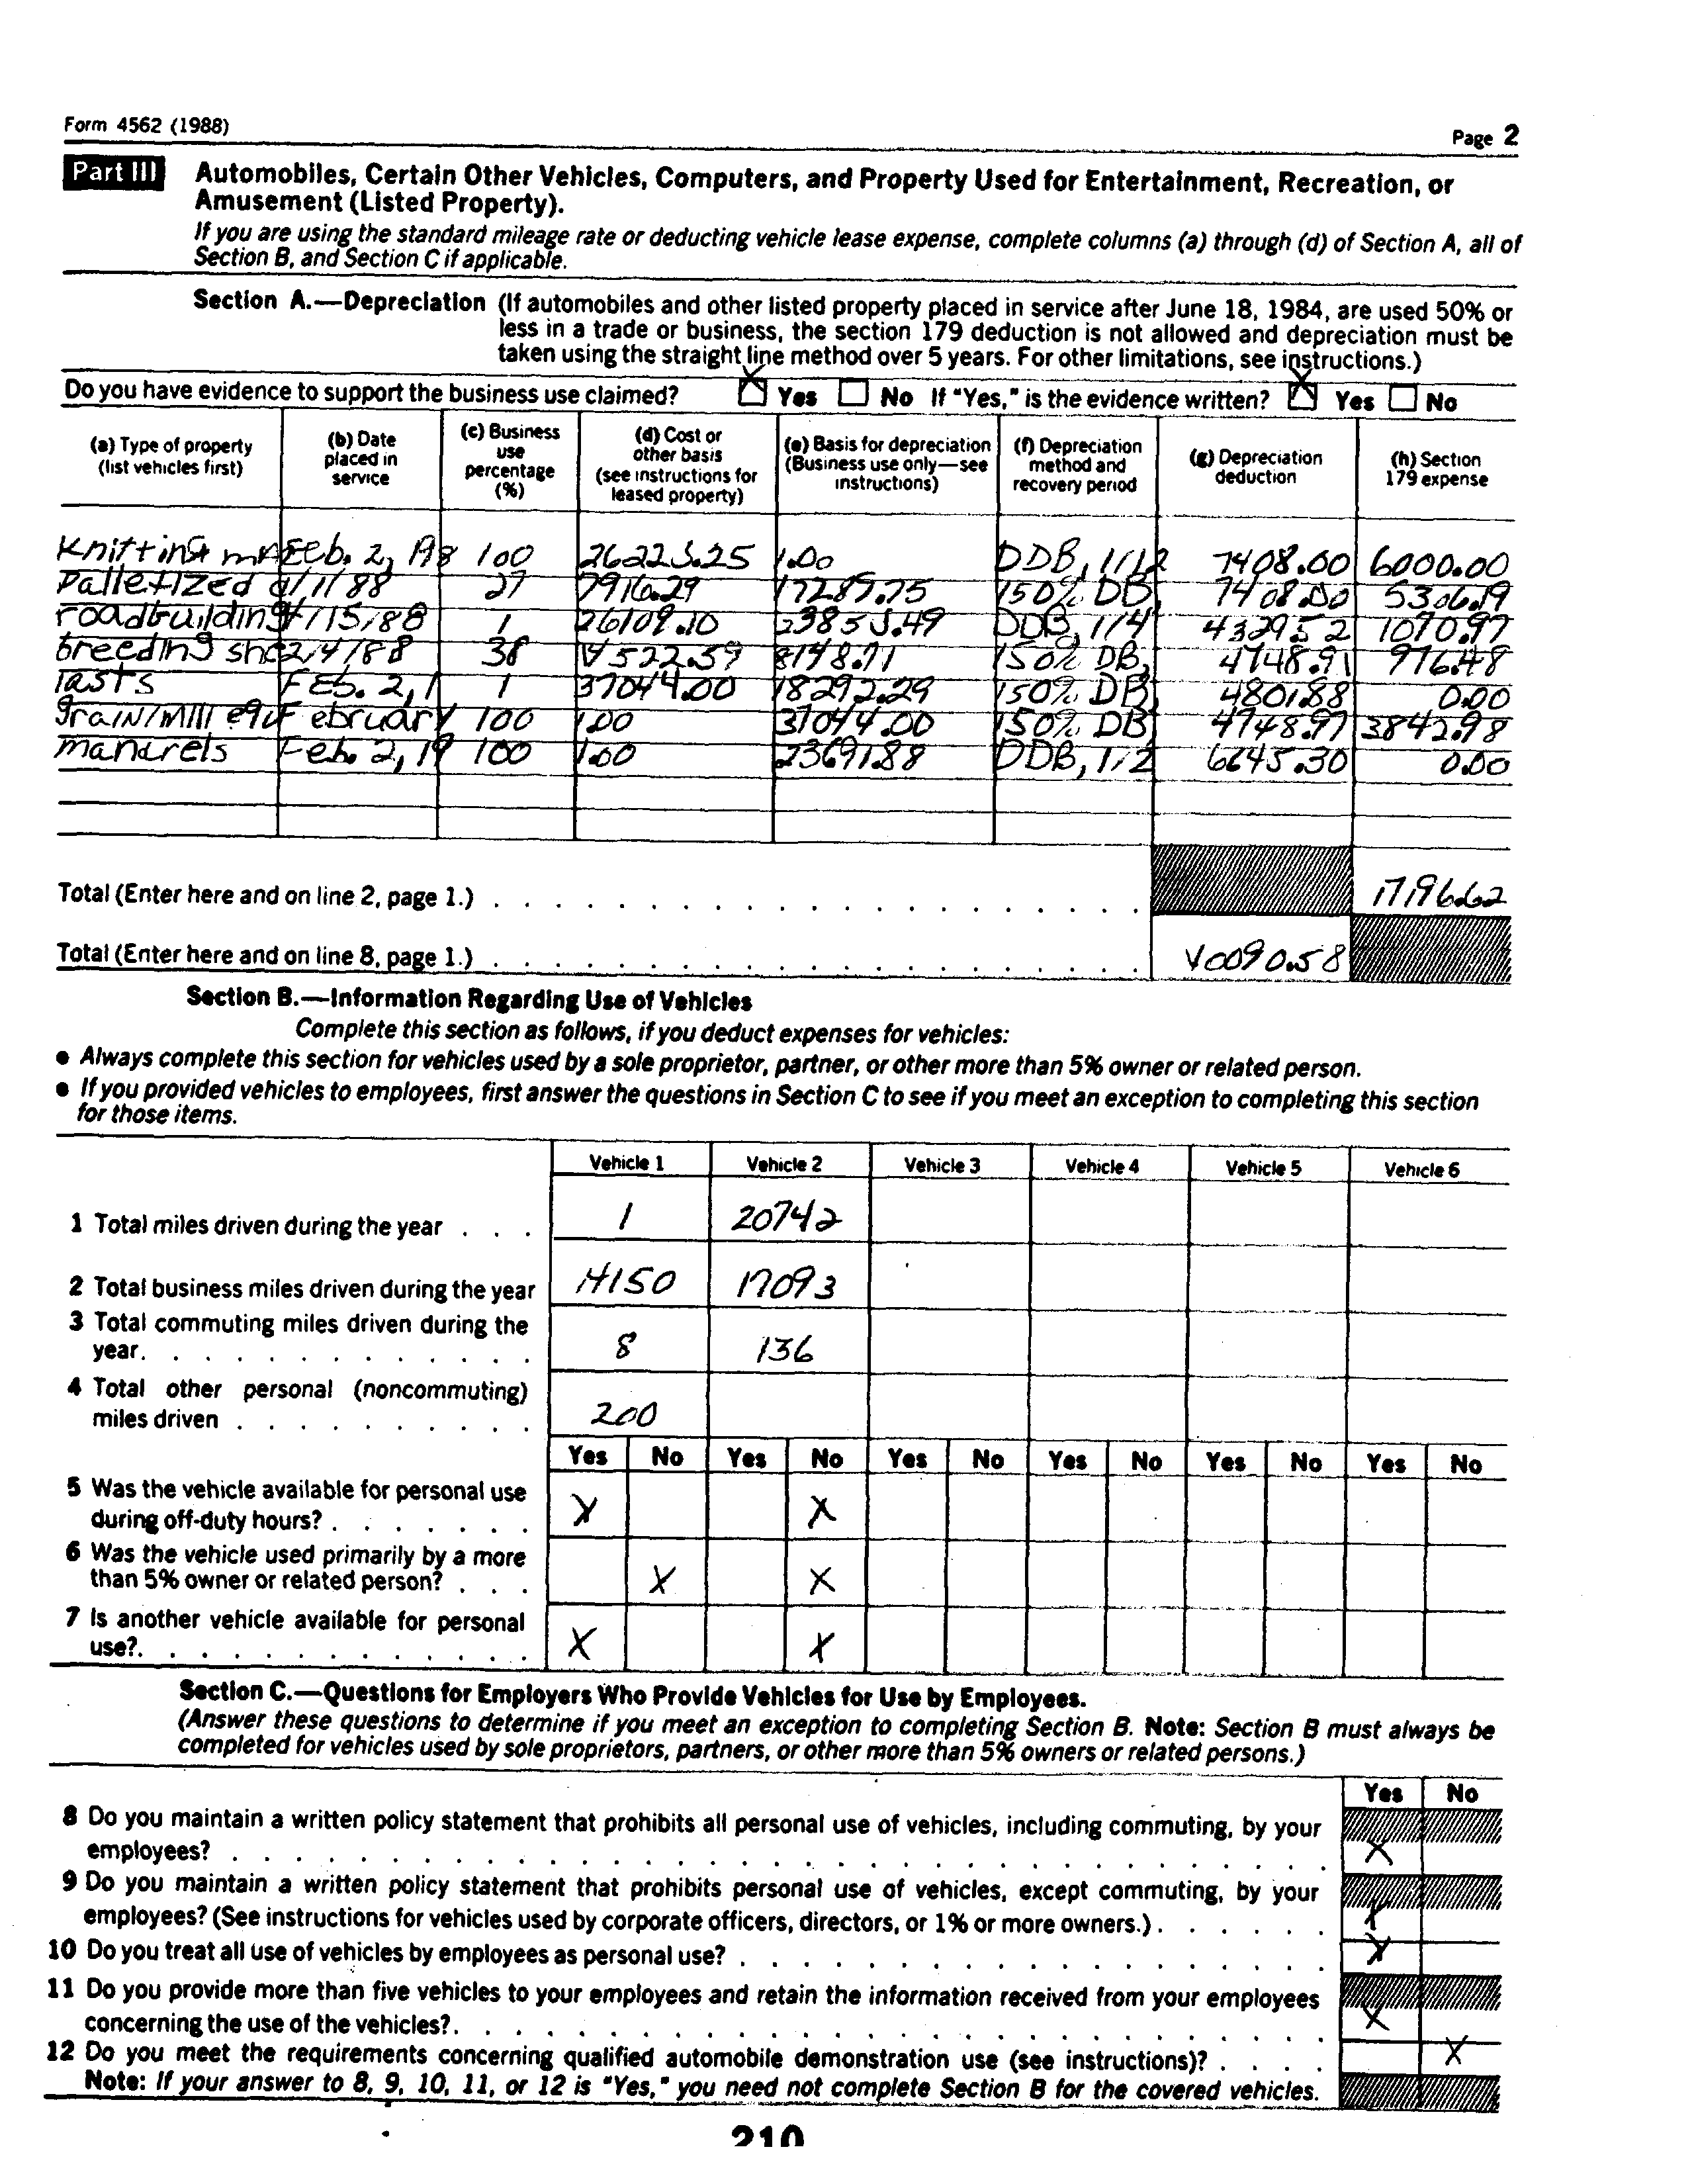 Form 4562 (1988)
Page 2
Part III Automobiles, Certain Other Vehicles, Computers, and Property Used for Entertainment, Recreation, or
Amusement (Listed Property).
If you are using the standard mileage rate or deducting vehicle lease expense, complete columns (a) through (d) of Section A, all of
Section B, and Section C if applicable.
Section A.—Depreciation (If automobiles and other listed property placed in service after June 18, 1984, are used 50% or
less in a trade or business, the section 179 deduction is not allowed and depreciation must be
taken using the straight line method over 5 years. For other limitations, see instructions.)
Do you have evidence to support the business use claimed? X Yes No If "Yes," is the evidence written? X Yes No
(a) Type of property (list vehicles first) (b) Date placed in service (c) Business use percentage (%) (d) Cost or other basis (see instructions for leased property) (e) Basis for depreciation (Business use only—see instructions) (f) Depreciation method and recovery period (g) Depreciation deduction (h) Section 179 expense
Knitting Feb. 2, 100 26223.25 1.00 DDB, 1/12 7408.00 6000.00
Palletized 27 7916.29 17287.75 150% DB, 7408.00 5306.19
roadbuilding 4/15/88 1 26109.10 23853.49 DDB, 1/4 4329.52 1070.97
breeding 2/4/88 38 8148.71 150% DB, 4748.91 976.48
lasts Feb. 2, 1 1 37044.00 18292.29 150% DB, 4801.88 0.00
grain/mill equ February 100 1.00 37044.00 150% DB 4748.97 3842.98
mandrels Feb. 2, 19 100 1.00 23691.88 DDB, 1/2 6645.30 0.00
Total (Enter here and on line 2, page 1.) 17196.62
Total (Enter here and on line 8, page 1.) 40090.58
Section B.—Information Regarding Use of Vehicles
Complete this section as follows, if you deduct expenses for vehicles:
● Always complete this section for vehicles used by a sole proprietor, partner, or other more than 5% owner or related person.
● If you provided vehicles to employees, first answer the questions in Section C to see if you meet an exception to completing this section
for those items.
Vehicle 1 Vehicle 2 Vehicle 3 Vehicle 4 Vehicle 5 Vehicle 6
1 Total miles driven during the year . . . 1 20742
2 Total business miles driven during the year 14150 17093
3 Total commuting miles driven during the
year. 8 136
4 Total other personal (noncommuting)
miles driven 200
Yes No Yes No Yes No Yes No Yes No Yes No
5 Was the vehicle available for personal use
during off-duty hours? X X
6 Was the vehicle used primarily by a more
than 5% owner or related person? X X
7 Is another vehicle available for personal
use? X X
Section C.—Questions for Employers Who Provide Vehicles for Use by Employees.
(Answer these questions to determine if you meet an exception to completing Section B. Note: Section B must always be
completed for vehicles used by sole proprietors, partners, or other more than 5% owners or related persons.)
Yes No
8 Do you maintain a written policy statement that prohibits all personal use of vehicles, including commuting, by your
employees? X
9 Do you maintain a written policy statement that prohibits personal use of vehicles, except commuting, by your
employees? (See instructions for vehicles used by corporate officers, directors, or 1% or more owners.) X
10 Do you treat all use of vehicles by employees as personal use? X
11 Do you provide more than five vehicles to your employees and retain the information received from your employees
concerning the use of the vehicles? X
12 Do you meet the requirements concerning qualified automobile demonstration use (see instructions)? X
Note: If your answer to 8, 9, 10, 11, or 12 is "Yes," you need not complete Section B for the covered vehicles.
210